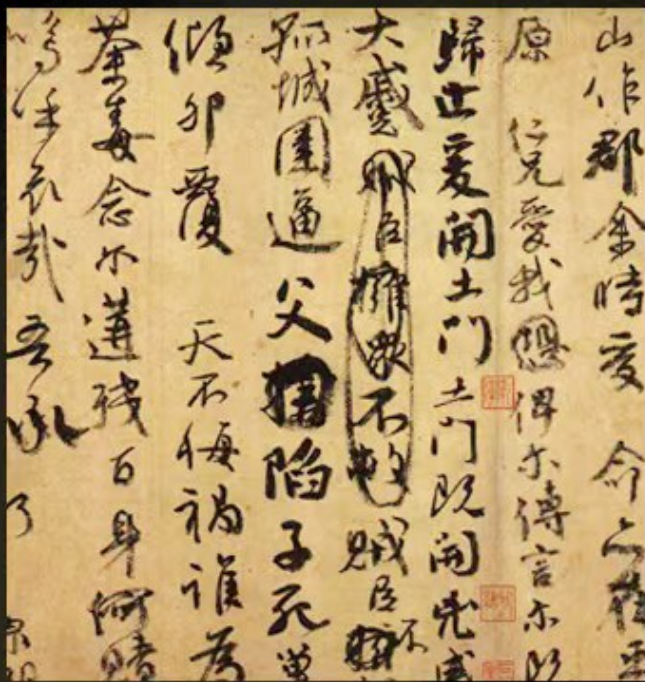 山作郡余時受命亦在平
原仁兄愛我俾尔傳言尔既
歸止爰開土門土門既開兇威
大蹙賊臣擁衆不救賊臣不
孤城圍逼父陷子死巢
傾卵覆天不悔禍誰為
荼毒念尔遘殘百身何贖
嗚呼哀哉吾承